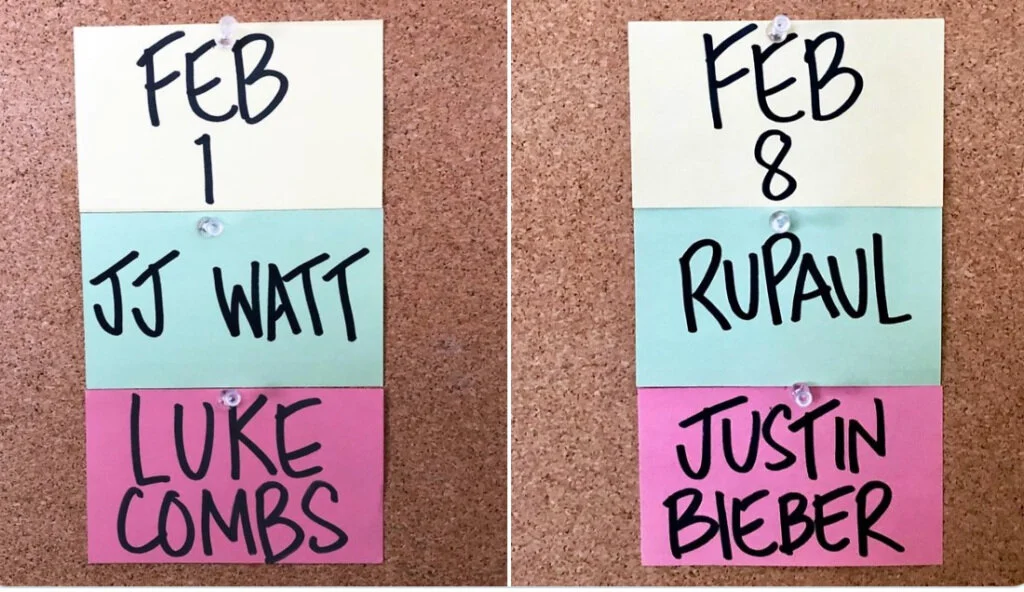 FEB
1
JJ WATT
LUKE
COMBS
FEB
8
RUPAUL
JUSTIN
BIEBER